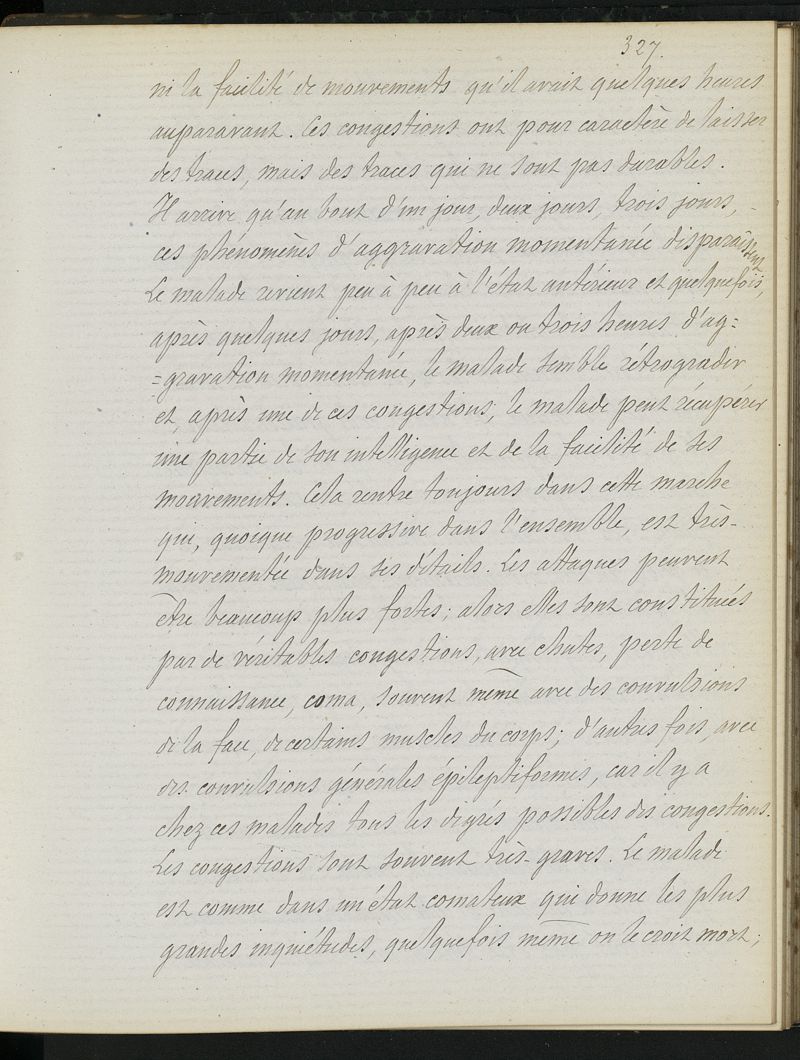 327.
ni la facilité de mouvements qu'il avait quelques heures
auparavant. Ces congestions ont pour caractère de laisser
des traces, mais des traces qui ne sont pas durables.
Il arrive qu'au bout d'un jour, deux jours, trois jours,
ces phénomènes d'aggravation momentanée disparaissent
Le malade revient peu à peu à l'état antérieur et quelquefois,
après quelques jours, après deux ou trois heures d'ag=
=gravation momentanée, le malade semble rétrograder
et, après une de ces congestions, le malade peut récupérer
une partie de son intelligence et de la facilité de ses
mouvements. Cela rentre toujours dans cette marche
qui, quoique progressive dans l'ensemble, est très-
mouvementée dans ses détails. Les attaques peuvent
être beaucoup plus fortes; alors elles sont constituées
par de véritables congestions, avec chutes, perte de
connaissance, coma, souvent même avec des convulsions
de la face, de certains muscles du corps; d'autres fois, avec
des convulsions générales épileptiformes, car il y a
chez ces malades tous les degrés possibles des congestions.
Les congestions sont souvent très-graves. Le malade
est comme dans un état comateux qui donne les plus
grandes inquiétudes, quelquefois même on le croit mort;